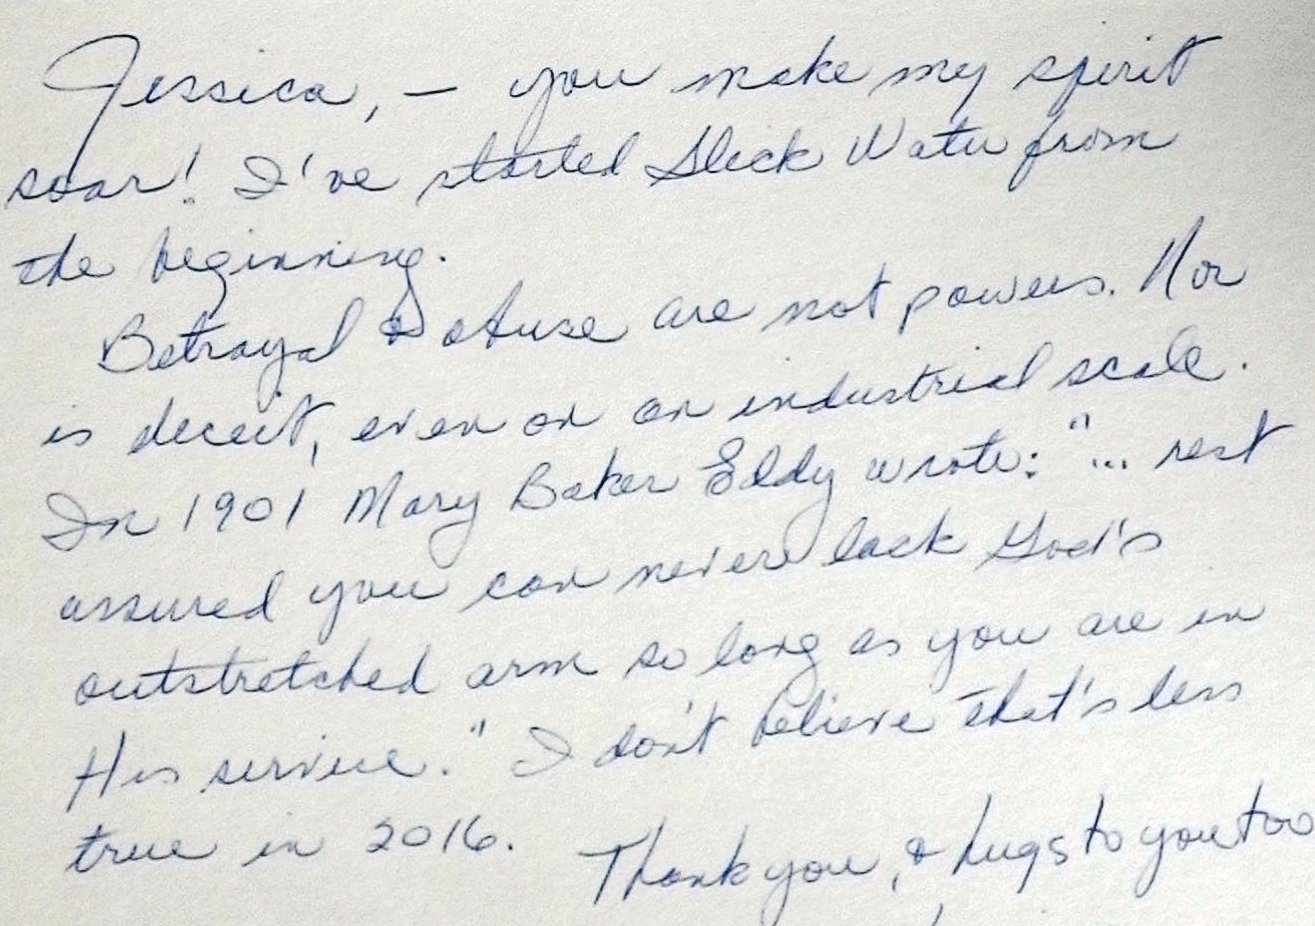 Jessica, – you make my spirit
soar! I've started Slick Water from
the beginning.
Betrayal & abuse are not powers. Nor
is deceit, even on an industrial scale.
In 1901 Mary Baker Eddy wrote: "... rest
assured you can never lack God's
outstretched arm so long as you are in
His service." I don't believe that's less
true in 2016.
Thank you, & hugs to you too